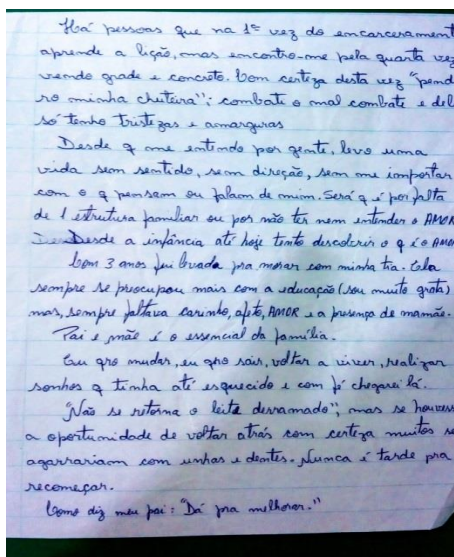 Há pessoas que na 1ª vez do encarcerament
aprende a lição, mas encontro-me pela quarta vez
vendo grade e concreto. Com certeza desta vez "pendu
ro minha chuteira"; combati o mal combate e del
só tenho tristezas e amarguras
Desde q me entendo por gente, levo uma
vida sem sentido, sem direção, sem me importar
com o q pensam ou falam de mim. Será q é por falta
de 1 estrutura familiar ou por não ter nem entender o AMOR
Desde a infância até hoje tento descobrir o q é o AMOR
Com 3 anos fui levada pra morar com minha tia. Ela
sempre se preocupou mais com a educação (sou muito grata)
mas, sempre faltava carinho, afeto, AMOR e a presença de mamãe.
Pai e mãe é o essencial da família.
Eu qro mudar, eu qro sair, voltar a viver, realizar
sonhos q tinha até esquecido e com fé chegarei lá.
"Não se retorna o leite derramado"; mas se houvess
a oportunidade de voltar atrás com certeza muitos se
agarrariam com unhas e dentes. Nunca é tarde pra
recomeçar.
Como diz meu pai: "Dá pra melhorar."